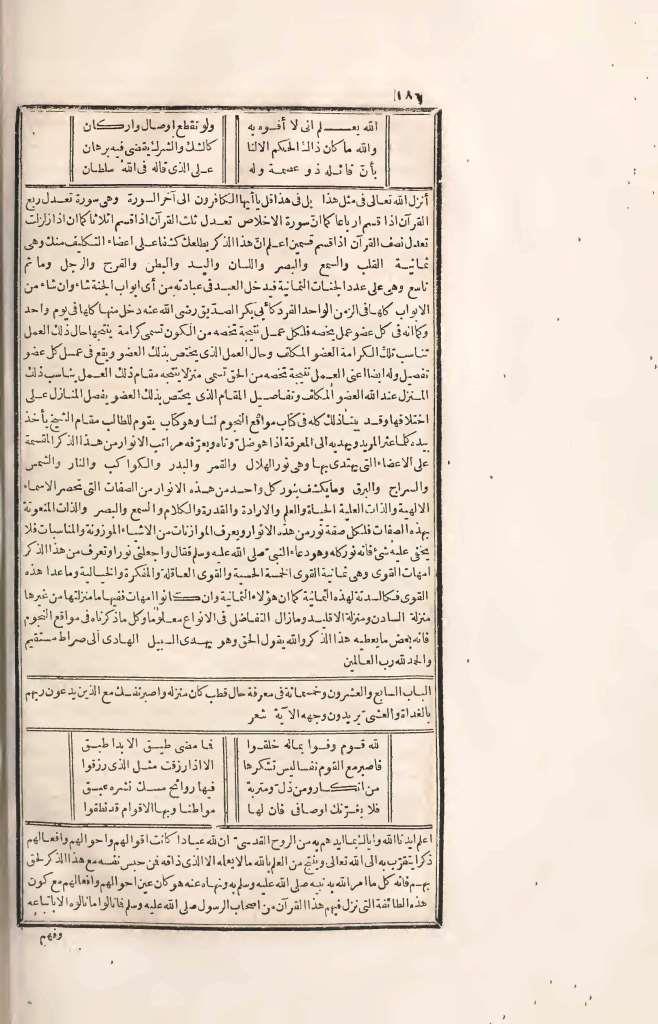 ١٨٦
الله يعلم اني لا أفوه به ولو تقطع اوصال واركان
والله ما كان ذاك الحكم الالنا كالشك والشرك يقضي فيه برهان
بأن قائله ذو عصمة وله على الذي قاله في الله سلطان
أنزل الله تعالى في مثل هذا بل في هذا قل يا أيها الكافرون الى آخر السورة وهي سورة تعدل ربع
القرآن اذا قسم ارباعا كما ان سورة الاخلاص تعدل ثلث القرآن اذا قسم اثلاثا كما ان اذا زلزلت
تعدل نصف القرآن اذا قسم قسمين اعلم ان هذا الذكر يطلعك كشفا على اعضاء التكليف منك وهي
ثمانية القلب والسمع والبصر واللسان واليد والبطن والفرج والرجل وما ثم
تاسع وهي على عدد الجنات الثمانية فيدخل العبد في عبادته من أي ابواب الجنة شاء وان شاء من
الابواب كلها في الزمن الواحد الفرد كأبي بكر الصديق رضي الله عنه دخل منها كلها في يوم واحد
وكما انه في كل عضو عمل يخصه فلكل عمل نتيجة تخصه من الكون تسمى كرامة ينتجها حال ذلك العمل
تناسب تلك الكرامة العضو المكلف وحال العمل الذي يختص بذلك العضو ويقع في عمل كل عضو
تفصيل وله ايضا اعني العمل نتيجة تخصه من الحق تسمى منزلا ينتجه مقام ذلك العمل يناسب ذلك
المنزل عند الله العضو المكلف وتفاصيل المقام الذي يختص بذلك العضو يفصل المنازل على
اختلافها وقد بينا ذلك كله في كتاب مواقع النجوم لنا وهو كتاب يقوم للطالب مقام الشيخ يأخذ
بيده كلما عثر المريد ويهديه الى المعرفة اذا هو ضل وتاه ويعرفه مراتب الانوار من هذا الذكر المقسمة
على الاعضاء التي يهتدي بها وهي نور الهلال والقمر والبدر والكواكب والنار والشمس
والسراج والبرق وما يكشف بنور كل واحد من هذه الانوار من الصفات التي تحصر الاسماء
الالهية والذات العلية الحياة والعلم والارادة والقدرة والكلام والسمع والبصر والذات المنعوتة
بهذه الصفات فلكل صفة نور من هذه الانوار ويعرف الموازنات من الاشياء الموزونة والمناسبات فلا
يخفى عليه شئ فانه نور كله وهو دعاء النبي صلى الله عليه وسلم فقال واجعلني نورا وتعرف من هذا الذكر
امهات القوى وهي ثمانية القوى الخمسة الحسية والقوى العاقلة والمفكرة والخيالية وما عدا هذه
القوى فكالسدنة لهذه الثمانية كما ان هؤلاء الثمانية وان كانوا امهات ففيها ما منزلتها من غيرها
منزلة السادن ومنزلة الاقليد وما زال التفاضل في الانواع معلوما وكل ما ذكرناه في مواقع النجوم
فانه بعض ما يعطيه هذا الذكر والله يقول الحق وهو يهدي السبيل الهادي الى صراط مستقيم
والحمد لله رب العالمين
الباب السابع والعشرون وخمسمائة في معرفة حال قطب كان منزله واصبر نفسك مع الذين يدعون ربهم
بالغداة والعشي يريدون وجهه الآية شعر
لله قوم وفوا بما له خلقوا فما مضى طبق الا بدا طبق
فاصبر مع القوم نفسا ليس تشكرها الا اذا رزقت مثل الذي رزقوا
من انكسار ومن ذل ومتربة فيها روائح مسك نشره عبق
فلا يغرنك اوصافي فان لها مواطنا وبها الاقوام قد نطقوا
اعلم ايدنا الله وايالك بما ايدهم به من الروح القدسي ان لله عبادا كانت اقوالهم واحوالهم وافعالهم
ذكرا يتقرب به الى الله تعالى وينتج من العلم بالله ما لا يعلمه الا الذي ذاقه فمن حبس نفسه مع هذا الذكر لحق
بهم فانه كل ما امر الله به نبيه صلى الله عليه وسلم به ونهاه عنه هو كان عين احوالهم وافعالهم مع كون
هذه الطائفة التي نزل فيهم هذا القرآن من اصحاب الرسول صلى الله عليه وسلم فما نالوا ما نالوه الا باتباعه
وفهم